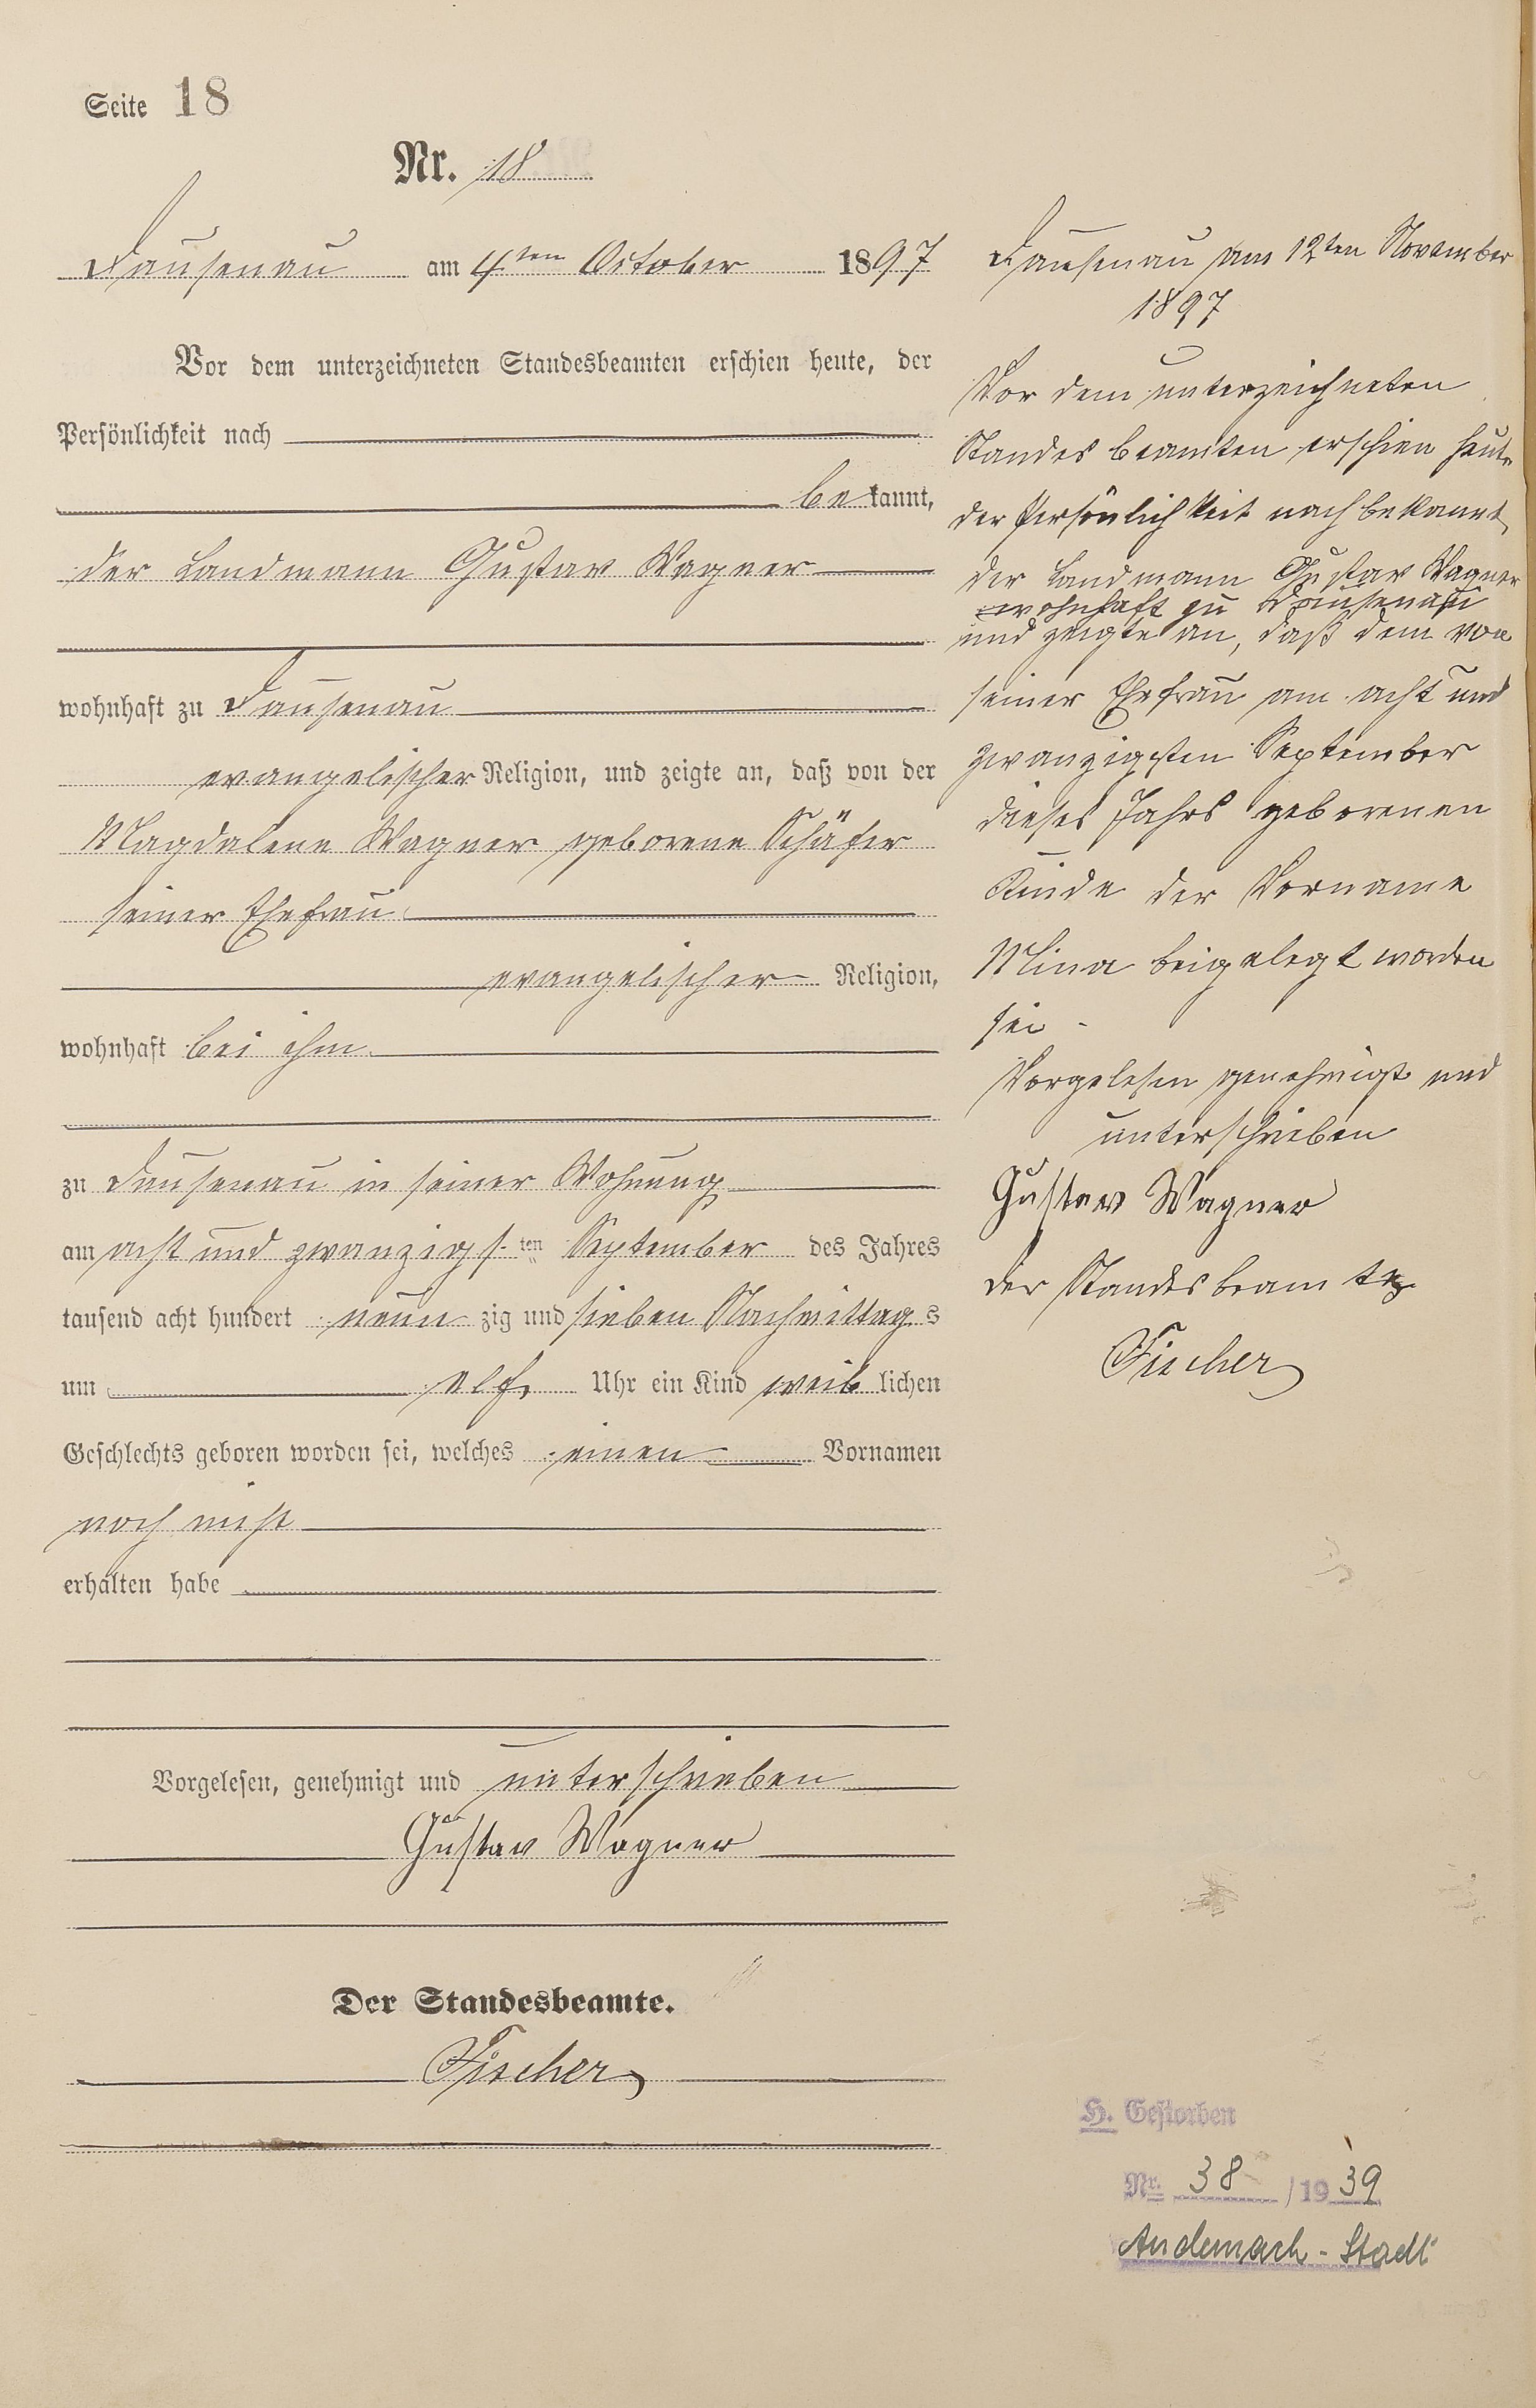 Seite 18
Nr. 18
Dausenau am 4ten October 1897
Vor dem unterzeichneten Standesbeamten erschien heute, der
Persönlichkeit nach
bekannt,
der Landmann Gustav Wagner
wohnhaft zu Dausenau
evangelischer Religion, und zeigte an, daß von der
Magdalene Wagner geborene Schäfer
seiner Ehefrau
evangelischer Religion,
wohnhaft bei ihm
zu Dausenau in seiner Wohnung
am acht und zwanzigsten September des Jahres
tausend acht hundert neunzig und sieben Nachmittags
um elf Uhr ein Kind weiblichen
Geschlechts geboren worden sei, welches einen Vornamen
noch nicht
erhalten habe
Vorgelesen, genehmigt und unterschrieben
Gustav Wagner
Der Standesbeamte.
Fischer
Dausenau am 12ten November
1897
Vor dem unterzeichneten
Standesbeamten erschien heute
der Persönlichkeit nach bekannt,
der Landmann Gustav Wagner
wohnhaft zu Dausenau
und zeigte an, daß dem von
seiner Ehefrau am acht und
zwanzigsten September
dieses Jahrs geborenen
Kinde der Vorname
Mina beigelegt worden
sei -
Vorgelesen genehmigt und
unterschrieben
Gustav Wagner
der Standesbeamte
Fischer
H. Gestorben
Nr. 38 / 1939
Andernach - Stadt